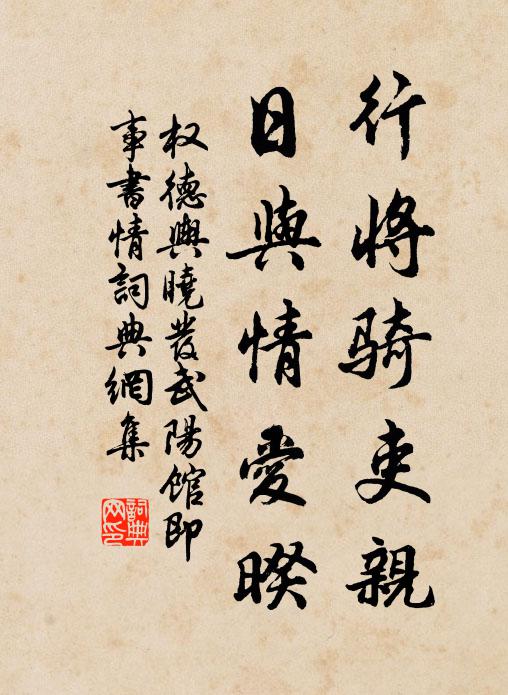 行將騎吏親
日與情愛暌
权德輿曉發武陽館即
事書情詞典網集
詞典
网印